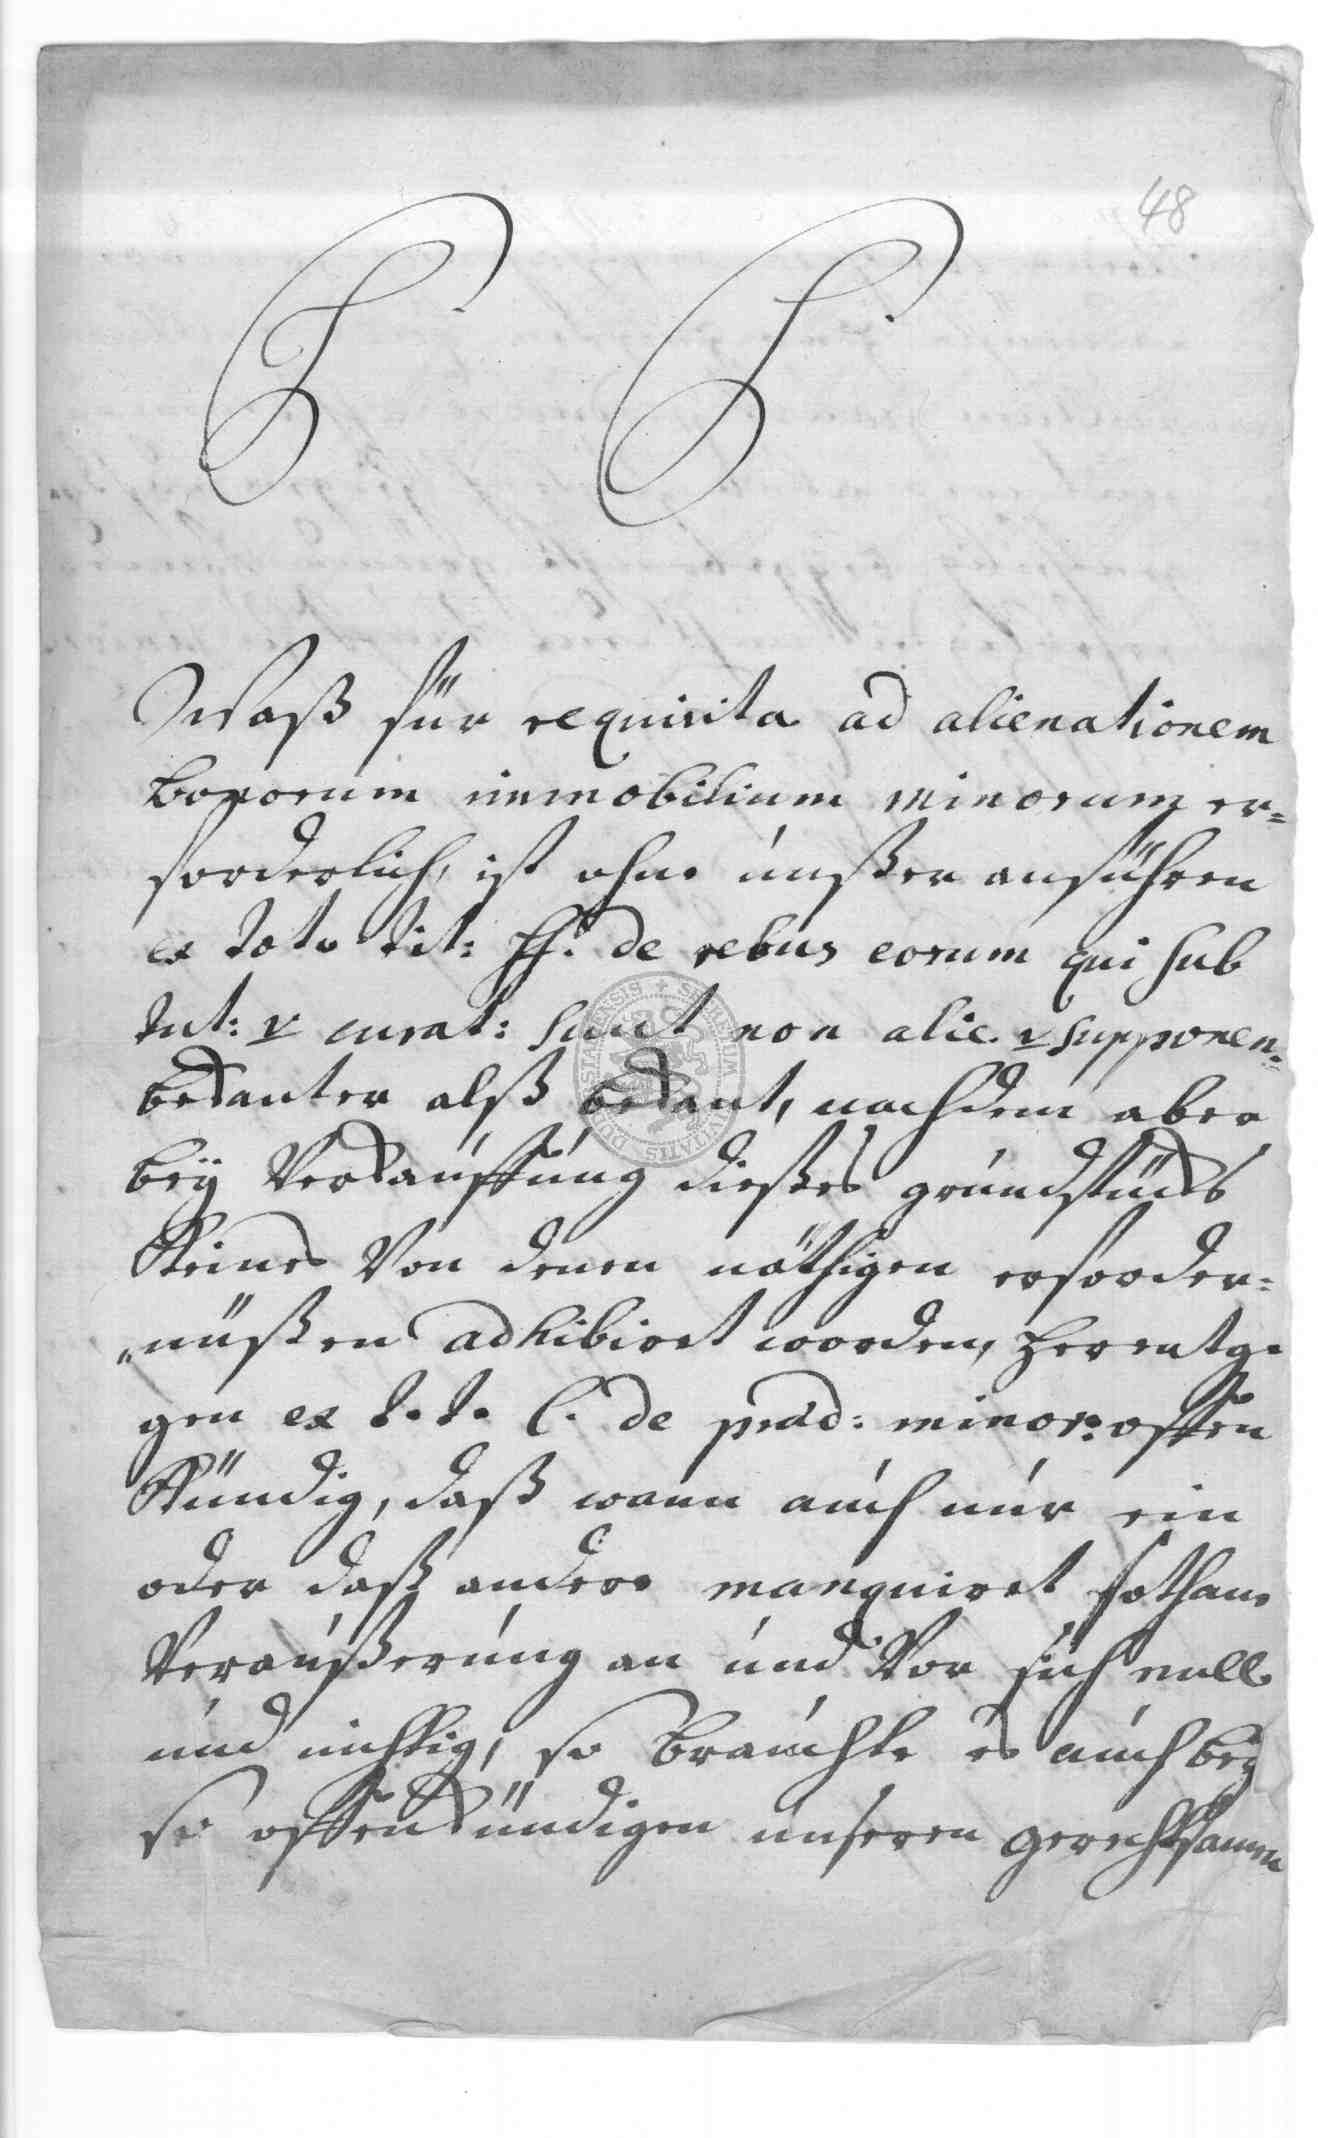 48
P P
Waß für requisita ad alienationem
bonorum immobilium minorum er=
forderlich, ist ohne unßer anführen
ex toto tit: ff. de rebus eorum qui sub
tut: & curat: sunt non alie. & supponen:
bekanter alß bekant, nachdem aber
beÿ Verkauffung dießes grundstücks
Keines Von denen nöthigen erforder=
nüßen adhibiret worden, herentge
gen ex t. t. C. de præd: minor: offen
Kündig, daß wann auch nur ein
oder daß andere manquiret sothane
Veraüßerung an und Vor sich null
und nichtig, so brauchte es auch beÿ
so offenkündigen unseren gerechtsamen